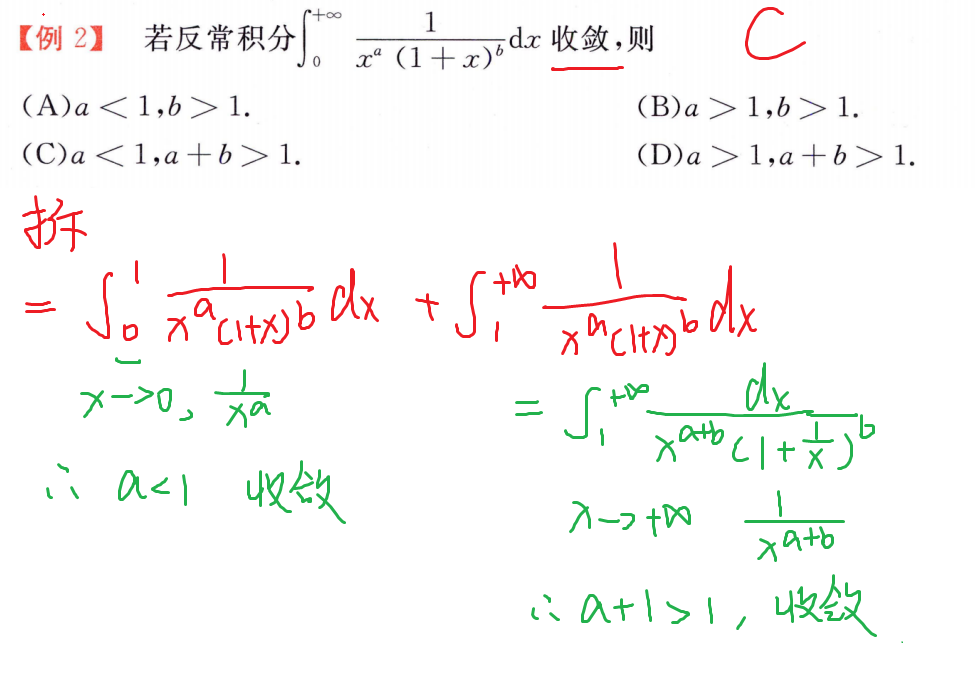 【例 2】 若反常积分∫₀^{+∞} 1/(x^a (1+x)^b) dx 收敛,则 C
(A)a<1,b>1. (B)a>1,b>1.
(C)a<1,a+b>1. (D)a>1,a+b>1.
拆
= ∫₀^1 1/(x^a(1+x)^b) dx + ∫₁^{+∞} 1/(x^a(1+x)^b) dx
x→0, 1/x^a
∴ a<1 收敛
= ∫₁^{+∞} dx/(x^{a+b}(1+1/x)^b)
x→+∞ 1/x^{a+b}
∴ a+1>1, 收敛